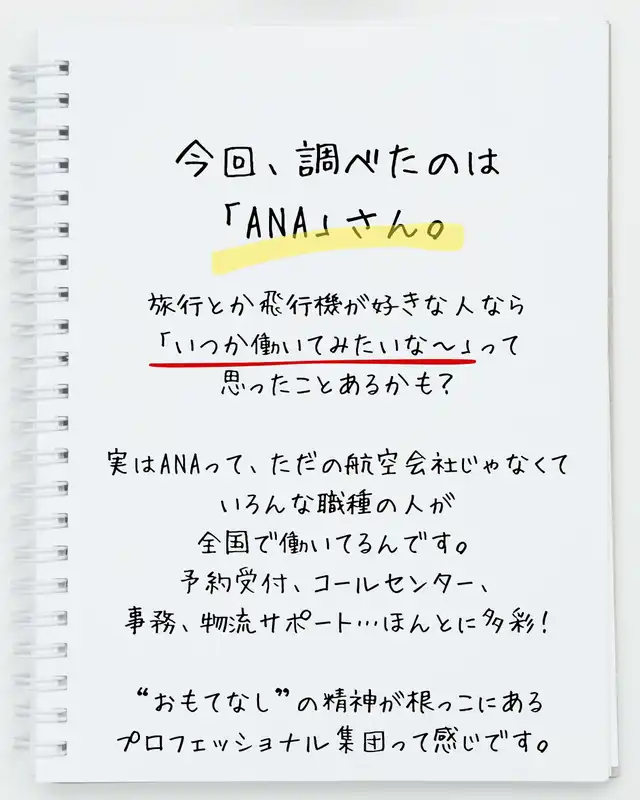 今回、調べたのは
「ANA」さん。
旅行とか飛行機が好きな人なら
「いつか働いてみたいな〜」って
思ったことあるかも？
実はANAって、ただの航空会社じゃなくて
いろんな職種の人が
全国で働いてるんです。
予約受付、コールセンター、
事務、物流サポート…ほんとに多彩！
“おもてなし”の精神が根っこにある
プロフェッショナル集団って感じです。